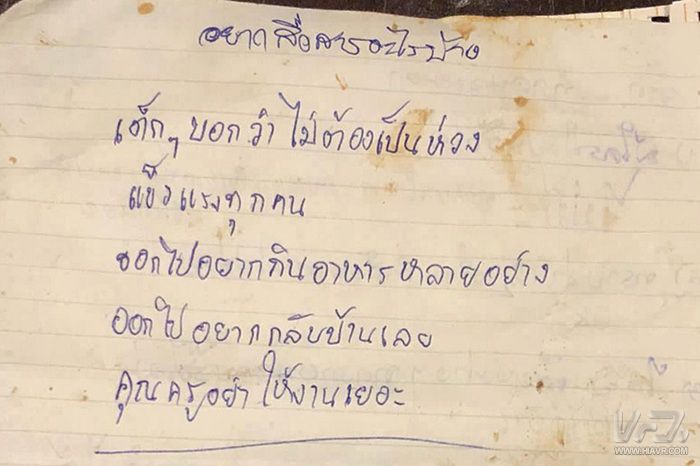 อยากสื่อสารอะไรบ้าง
เด็กๆ บอกว่า ไม่ต้องเป็นห่วง
แข็งแรงทุกคน
ออกไปอยากกินอาหารหลายอย่าง
ออกไปอยากกลับบ้านเลย
คุณครูอย่าให้งานเยอะ
WWW.HIAVR.COM